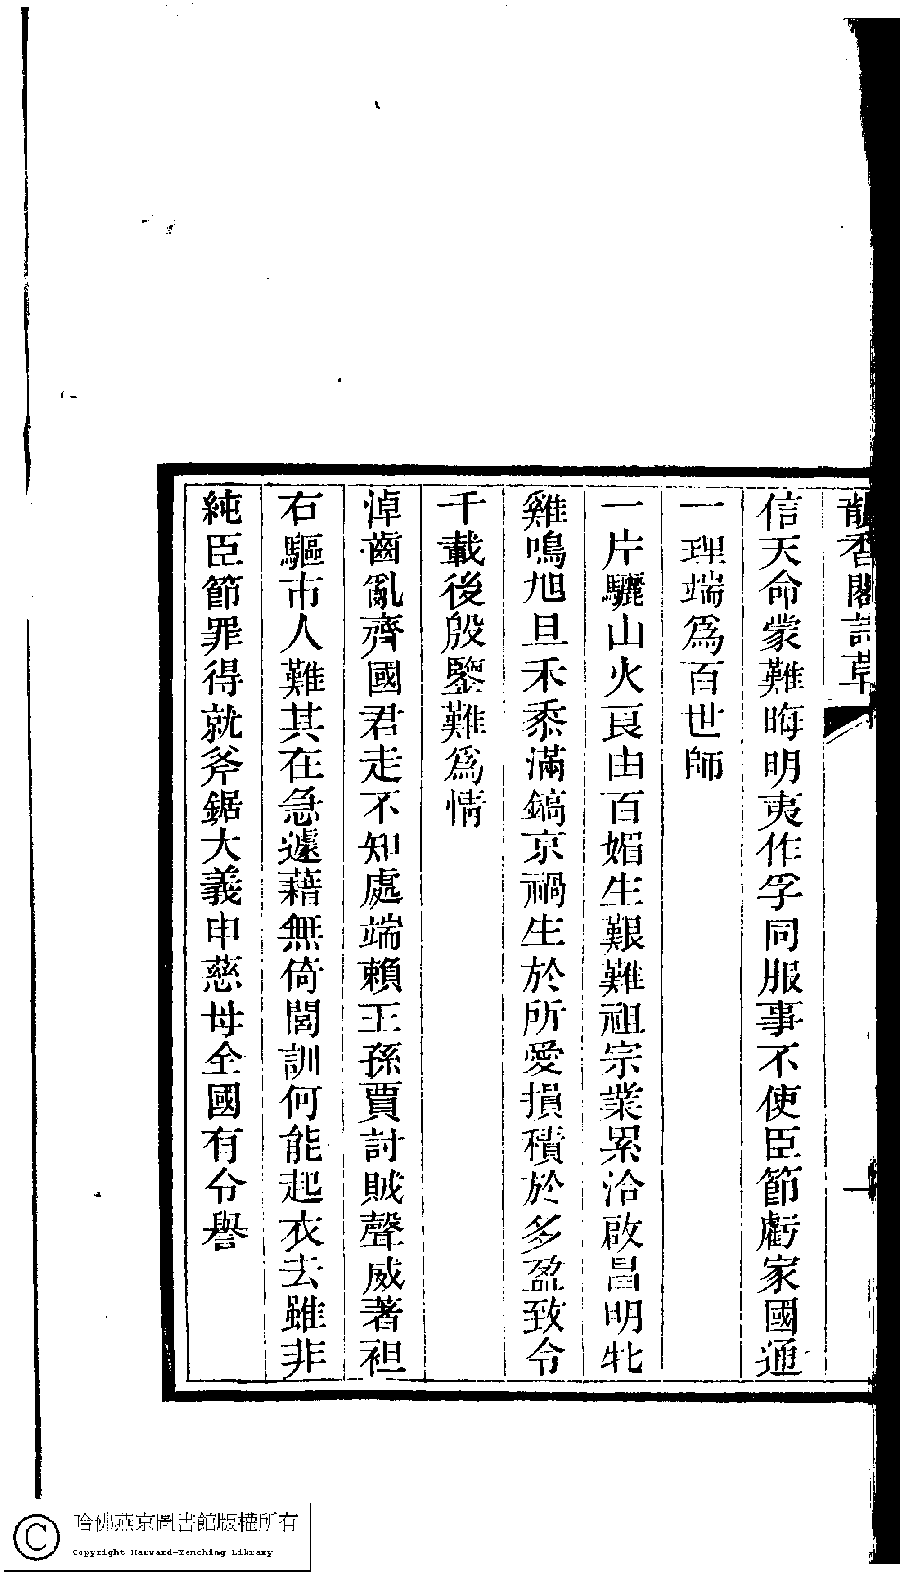 韻香閣詩草
一
信天命蒙難晦明夷作孚同服事不使臣節虧家國通
一理端爲百世師
一片驪山火良由百媚生艱難祖宗業累洽啟昌明牝
雞鳴旭旦禾黍滿鎬京禍生於所愛損積於多盈致令
千載後殷鑒難爲情
淖齒亂齊國君走不知處端賴王孫賈討賊聲威著袒
右驅市人難其在急遽藉無倚閭訓何能起衣去雖非
純臣節罪得就斧鋸大義申慈母全國有令譽
哈佛燕京圖書館版權所有
Copyright Harvard-Yenching Library